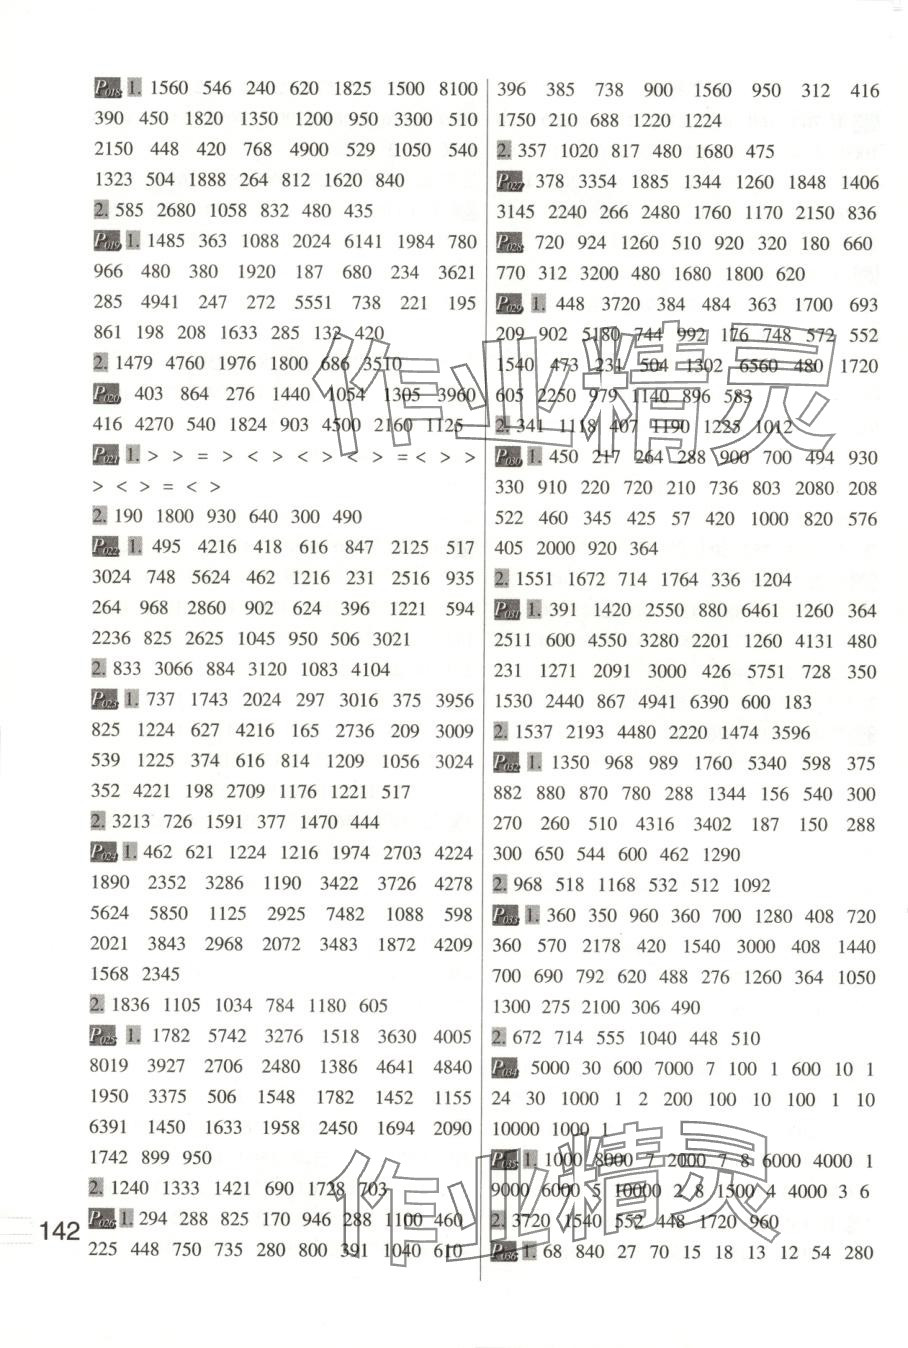 P018 1. 1560 546 240 620 1825 1500 8100
390 450 1820 1350 1200 950 3300 510
2150 448 420 768 4900 529 1050 540
1323 504 1888 264 812 1620 840
2. 585 2680 1058 832 480 435
P019 1. 1485 363 1088 2024 6141 1984 780
966 480 380 1920 187 680 234 3621
285 4941 247 272 5551 738 221 195
861 198 208 1633 285 132 420
2. 1479 4760 1976 1800 686 3510
P020 403 864 276 1440 1054 1305 3960
416 4270 540 1824 903 4500 2160 1125
P021 1. > > = > < > < > < > = < > >
> < > = < >
2. 190 1800 930 640 300 490
P022 1. 495 4216 418 616 847 2125 517
3024 748 5624 462 1216 231 2516 935
264 968 2860 902 624 396 1221 594
2236 825 2625 1045 950 506 3021
2. 833 3066 884 3120 1083 4104
P023 1. 737 1743 2024 297 3016 375 3956
825 1224 627 4216 165 2736 209 3009
539 1225 374 616 814 1209 1056 3024
352 4221 198 2709 1176 1221 517
2. 3213 726 1591 377 1470 444
P024 1. 462 621 1224 1216 1974 2703 4224
1890 2352 3286 1190 3422 3726 4278
5624 5850 1125 2925 7482 1088 598
2021 3843 2968 2072 3483 1872 4209
1568 2345
2. 1836 1105 1034 784 1180 605
P025 1. 1782 5742 3276 1518 3630 4005
8019 3927 2706 2480 1386 4641 4840
1950 3375 506 1548 1782 1452 1155
6391 1450 1633 1958 2450 1694 2090
1742 899 950
2. 1240 1333 1421 690 1728 703
P026 1. 294 288 825 170 946 288 1100 460
225 448 750 735 280 800 391 1040 610
142
396 385 738 900 1560 950 312 416
1750 210 688 1220 1224
2. 357 1020 817 480 1680 475
P027 378 3354 1885 1344 1260 1848 1406
3145 2240 266 2480 1760 1170 2150 836
P028 720 924 1260 510 920 320 180 660
770 312 3200 480 1680 1800 620
P029 1. 448 3720 384 484 363 1700 693
209 902 5180 744 992 176 748 572 552
1540 473 231 504 1302 6560 480 1720
605 2250 979 1140 896 583
2. 341 1118 407 1190 1225 1012
P030 1. 450 217 264 288 900 700 494 930
330 910 220 720 210 736 803 2080 208
522 460 345 425 57 420 1000 820 576
405 2000 920 364
2. 1551 1672 714 1764 336 1204
P031 1. 391 1420 2550 880 6461 1260 364
2511 600 4550 3280 2201 1260 4131 480
231 1271 2091 3000 426 5751 728 350
1530 2440 867 4941 6390 600 183
2. 1537 2193 4480 2220 1474 3596
P032 1. 1350 968 989 1760 5340 598 375
882 880 870 780 288 1344 156 540 300
270 260 510 4316 3402 187 150 288
300 650 544 600 462 1290
2. 968 518 1168 532 512 1092
P033 1. 360 350 960 360 700 1280 408 720
360 570 2178 420 1540 3000 408 1440
700 690 792 620 488 276 1260 364 1050
1300 275 2100 306 490
2. 672 714 555 1040 448 510
P034 5000 30 600 7000 7 100 1 600 10 1
24 30 1000 1 2 200 100 10 100 1 10
10000 1000 1
P035 1. 1000 8000 7 2000 7 8 6000 4000 1
9000 6000 5 10000 2 8 1500 4 4000 3 6
2. 3720 1540 552 448 1720 960
P036 1. 68 840 27 70 15 18 13 12 54 280
作业精灵
作业精灵